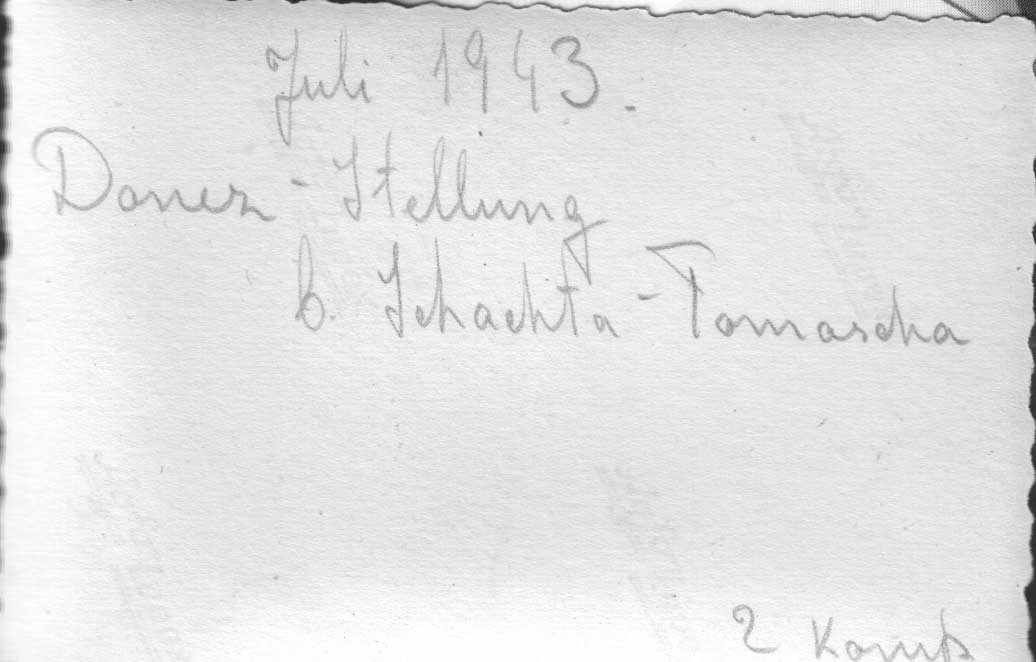 Juli 1943.
Donez-Stellung
b. Schachta-Tomascha
2 Komp